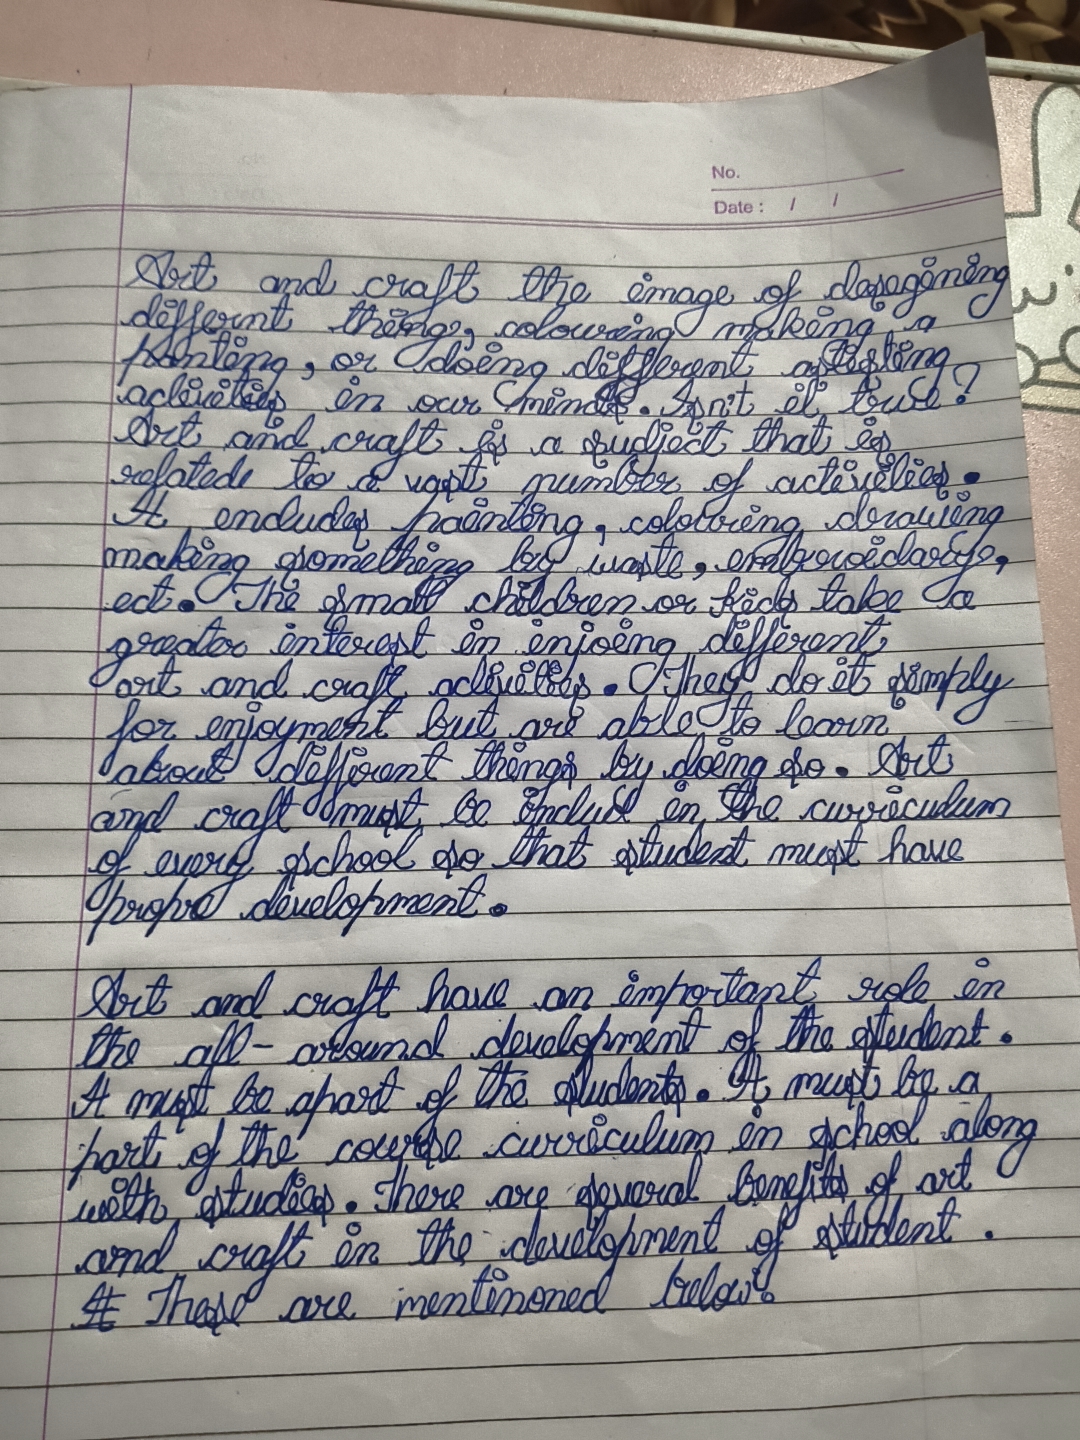 No.
Date : / /
Art and craft the image of desagining
differnt things, colouring making a
painting, or doing different
activities in our minds. Isn't it true?
Art and craft is a subject that is
related to a vast number of activities.
It encludes painting, colouring, drawing
making something by waste, embroidary,
ect. The small children or kids take a
greater interest in enjoing different
art and craft activities. They do it simply
for enjoyment but are able to learn
about different things by doing so. Art
and craft must be includ in the curriculum
of every school so that student must have
propre development.
Art and craft have an important role in
the all-around development of the student.
It must be apart of the students. It must be a
part of the course curriculum in school along
with studies. There are several benefits of art
and craft in the development of student.
These are mentinoned below: